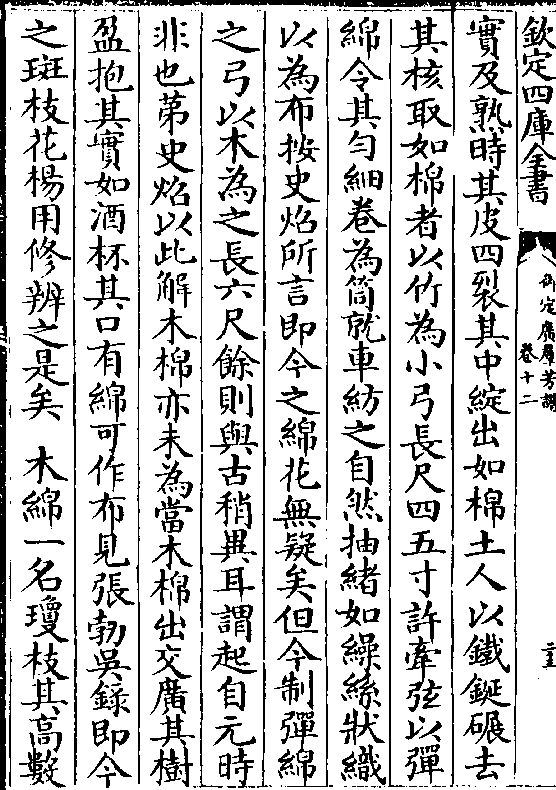 欽定四庫全書
御定廣羣芳譜
卷十二
實及熟時其皮四裂其中綻出如棉土人以鐵鋋碾去
其核取如棉者以竹為小弓長尺四五寸許牽弦以彈
綿令其勻細卷為筒就車紡之自然抽緒如繅絲狀織
以為布按史炤所言即今之綿花無疑矣但今制彈綿
之弓以木為之長六尺餘則與古稍異耳謂起自元時
非也第史炤以此解木棉亦未為當木棉出交廣其樹
盈抱其實如酒杯其口有綿可作布見張勃吳錄即今
之斑枝花楊用修辨之是矣　木綿一名瓊枝其高數